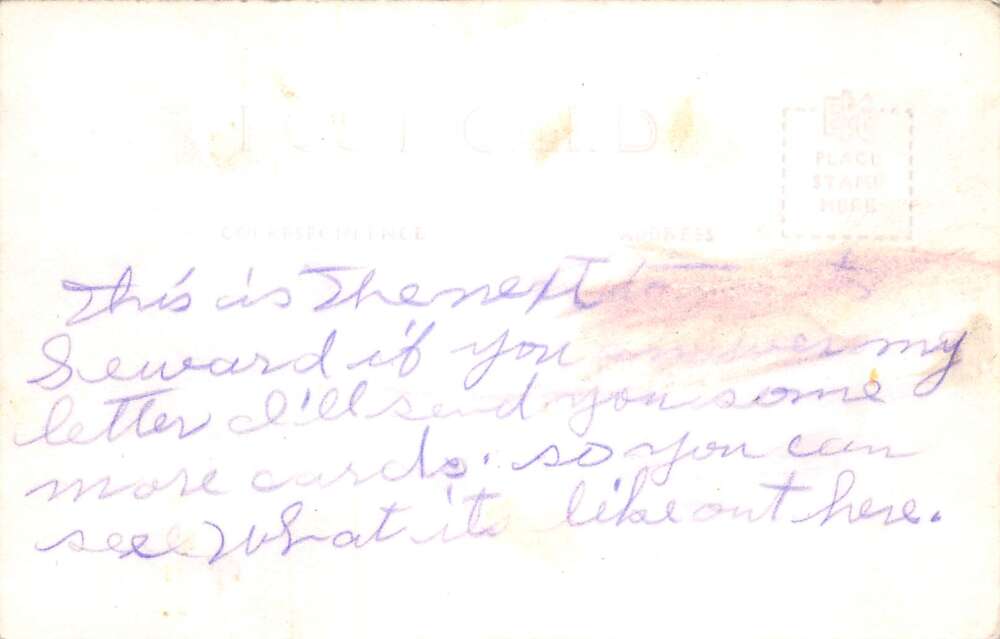 POST CARD
PLACE
STAMP
HERE
CORRESPONDENCE
ADDRESS
This is the next to
Seward if you answer my
letter I'll send you some
more cards. so you can
see what its like out here.